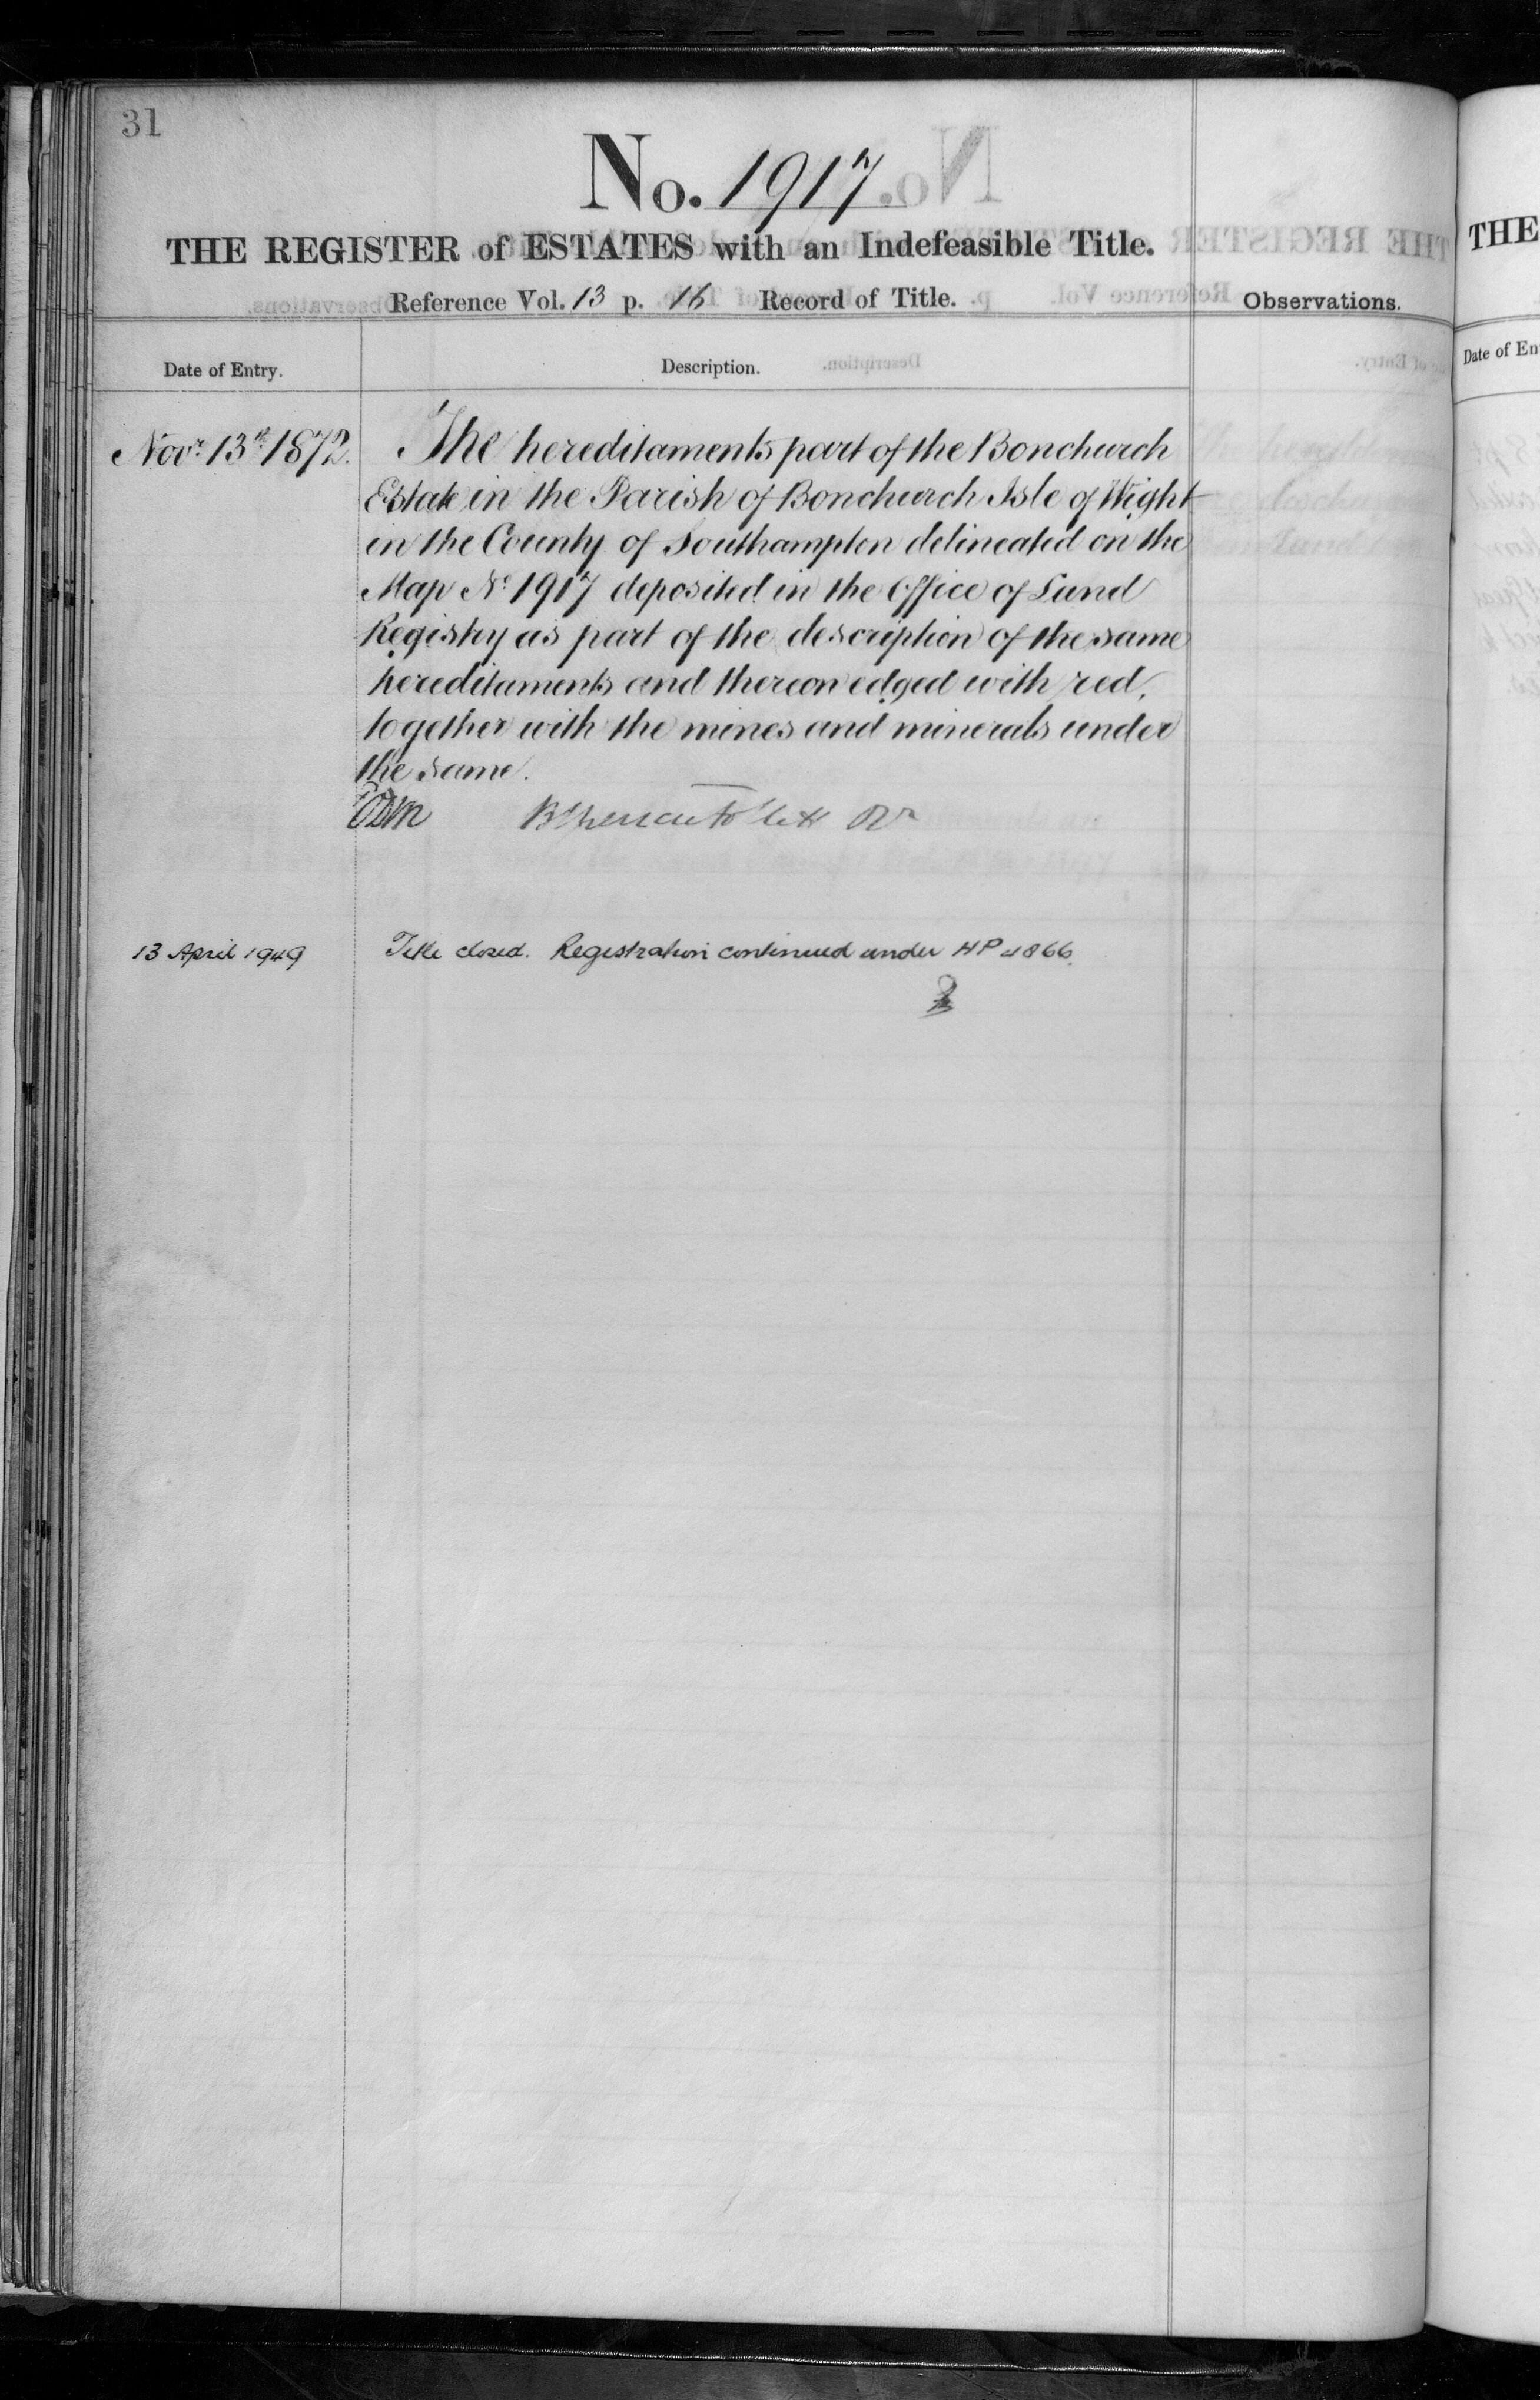 31
No. 1917
THE REGISTER of ESTATES with an Indefeasible Title.
Reference Vol. 13 p. 16 Record of Title.
Observations.
Date of Entry.
Description.
Novr. 13th 1872.
The hereditaments part of the Bonchurch
Estate in the Parish of Bonchurch Isle of Wight
in the County of Southampton delineated on the
Map No. 1917 deposited in the Office of Land
Registry as part of the description of the same
hereditaments and thereon edged with red,
together with the mines and minerals under
the same.
13 April 1949
Title closed. Registration continued under HP 4866.
THE
Date of En